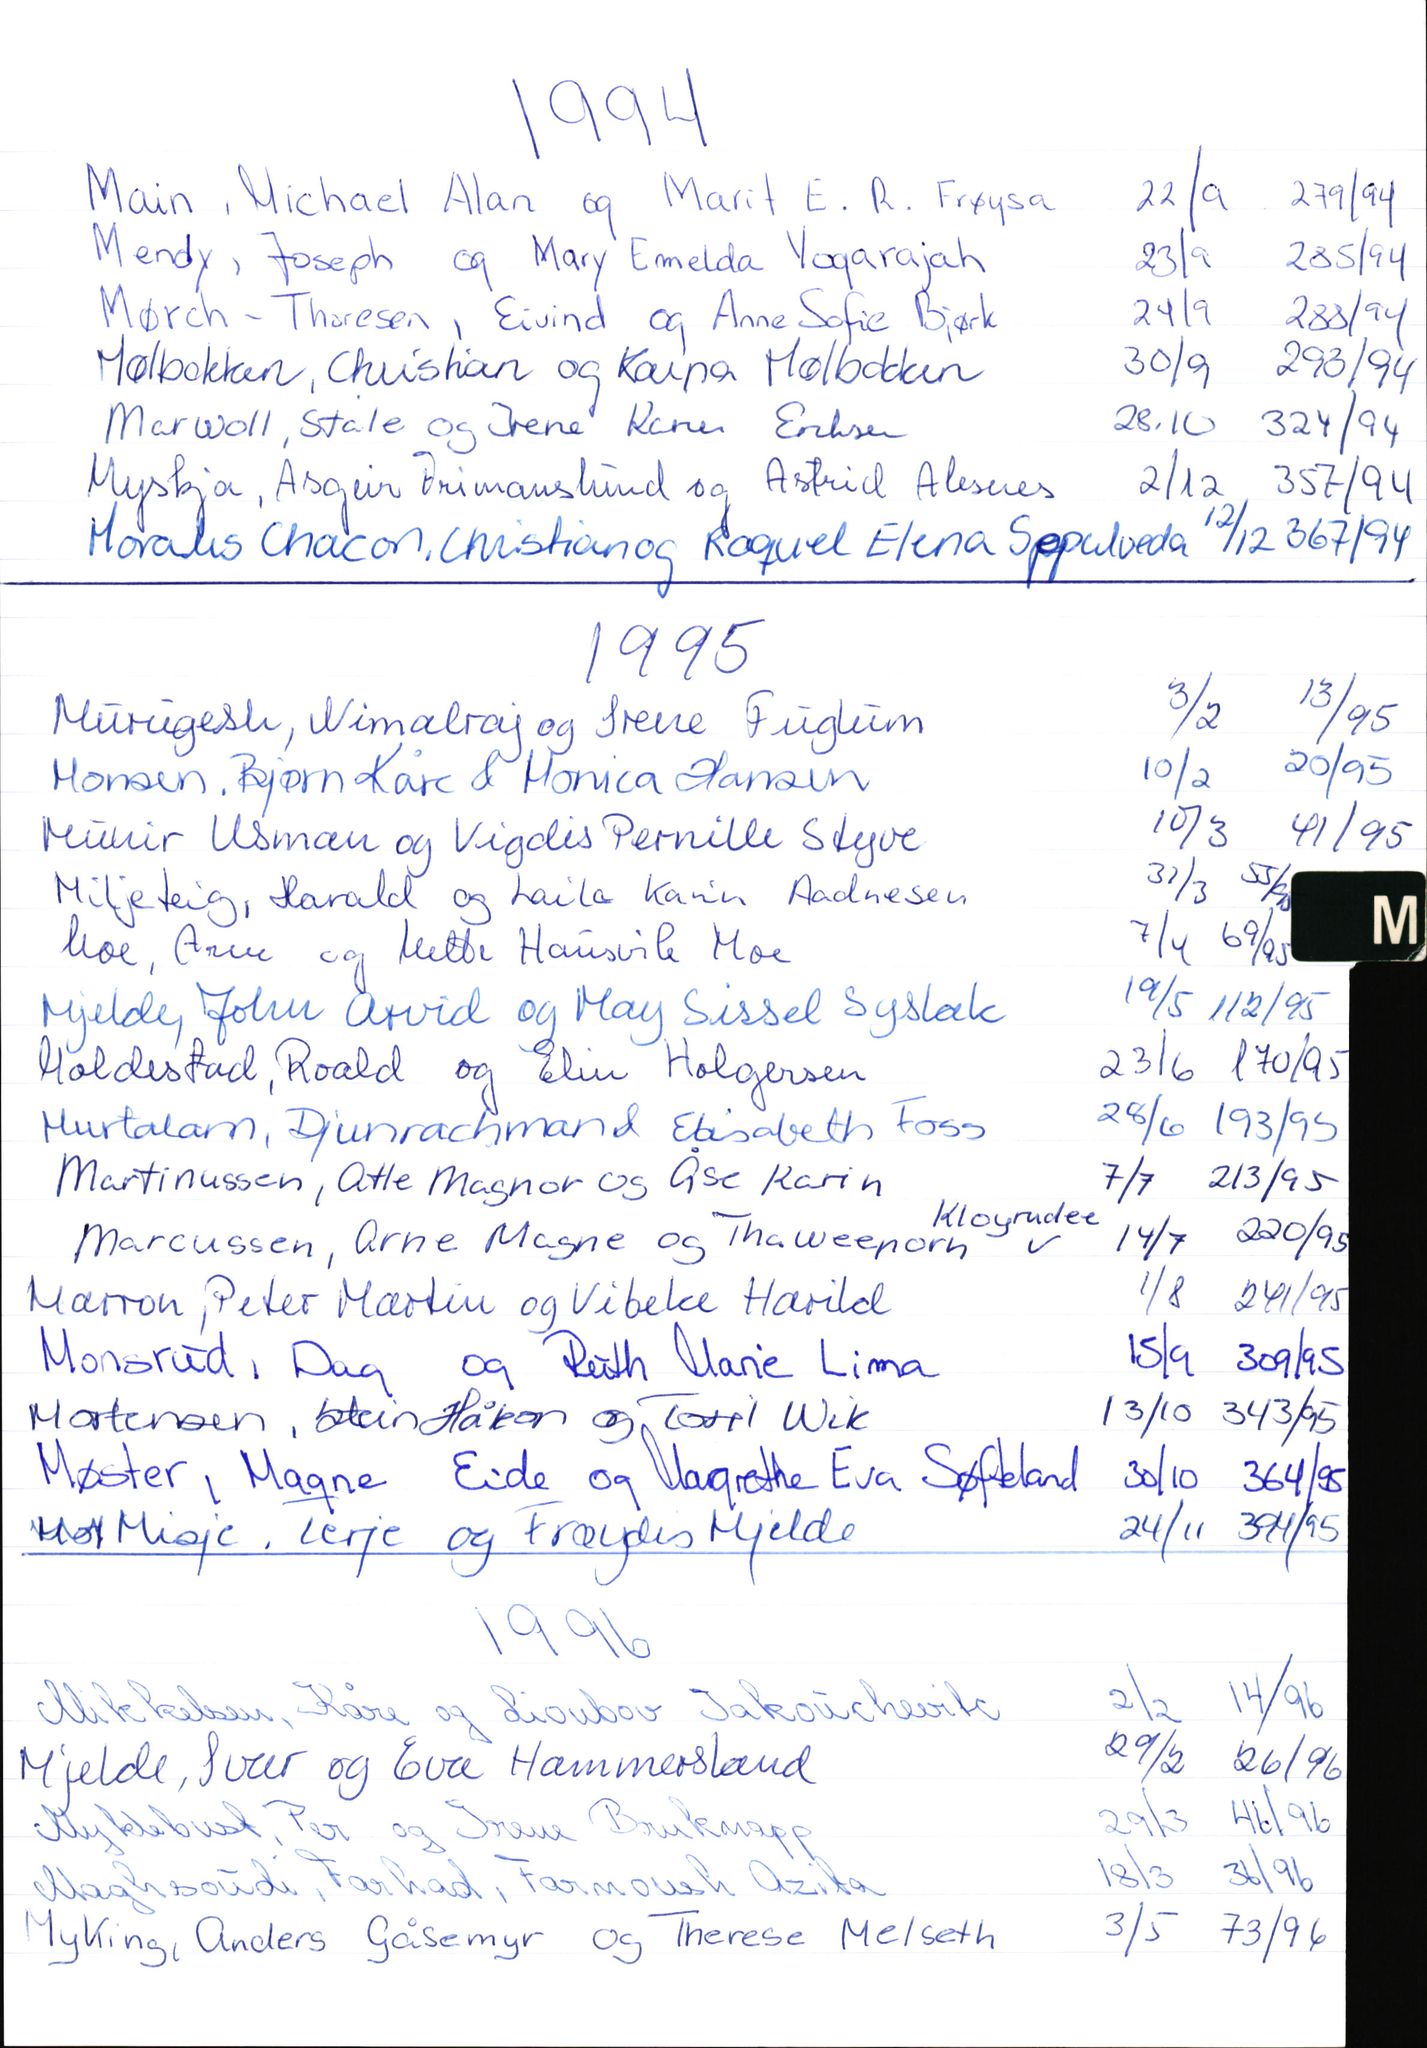 1994
Main, Michael Alan og Marit E. R. Frøysa 22/9 279/94
Mendy, Joseph og Mary Emelda Yogarajah 23/9 285/94
Mørch-Thoresen, Eivind og Anne Sofie Bjørk 24/9 288/94
Mølbakken, Christian og Mølbakken 30/9 293/94
Marwoll, Ståle og Irene Karin Eriksen 28.10 324/94
Myskja, Asgeir Frimanslund og Astrid Alesnes 2/12 357/94
Morales Chacon, Christian og Raquel Elena Sepulveda 12/12 367/94
1995
Murugesh, Nimalraj og Irene Fuglum 3/2 13/95
Monsen, Bjørn Kåre & Monica Hansen 10/2 20/95
Munir Usman og Vigdis Pernille Styve 10/3 41/95
Miljeteig, Harald og Laila Karin Aadnesen 31/3 55/95
Moe, Arne og Mette Hausvik Moe 7/4 69/95
M
Mjelde, John Arvid og May Sissel Syslak 19/5 112/95
Moldestad, Roald og Elin Holgersen 23/6 170/95
Murtalam, Djunrachman & Elisabeth Foss 28/6 193/95
Martinussen, Atle Magnor og Åse Karin 7/7 213/95
Marcussen, Arne Magne og Thaweeporn Kloyrudee 14/7 220/95
Marron, Peter Martin og Vibeke Harild 1/8 241/95
Monsrud, Dag og Ruth Marie Lima 15/9 309/95
Mortensen, Stein Håkon og Toril Wik 13/10 343/95
Møster, Magne Eide og Margrethe Eva Søfteland 30/10 364/95
Misje, Terje og Frøydis Mjelde 24/11 394/95
1996
Mikkelsen, Kåre og Lioubov Jakouchevitc 2/2 14/96
Mjelde, Ivar og Eva Hammersland 29/2 26/96
Myklebust, Per og Irene Bruknapp 29/3 46/96
Maghsoudi, Farhad, Farnoush Azita 18/3 36/96
Myking, Anders Gåsemyr og Therese Melseth 3/5 73/96